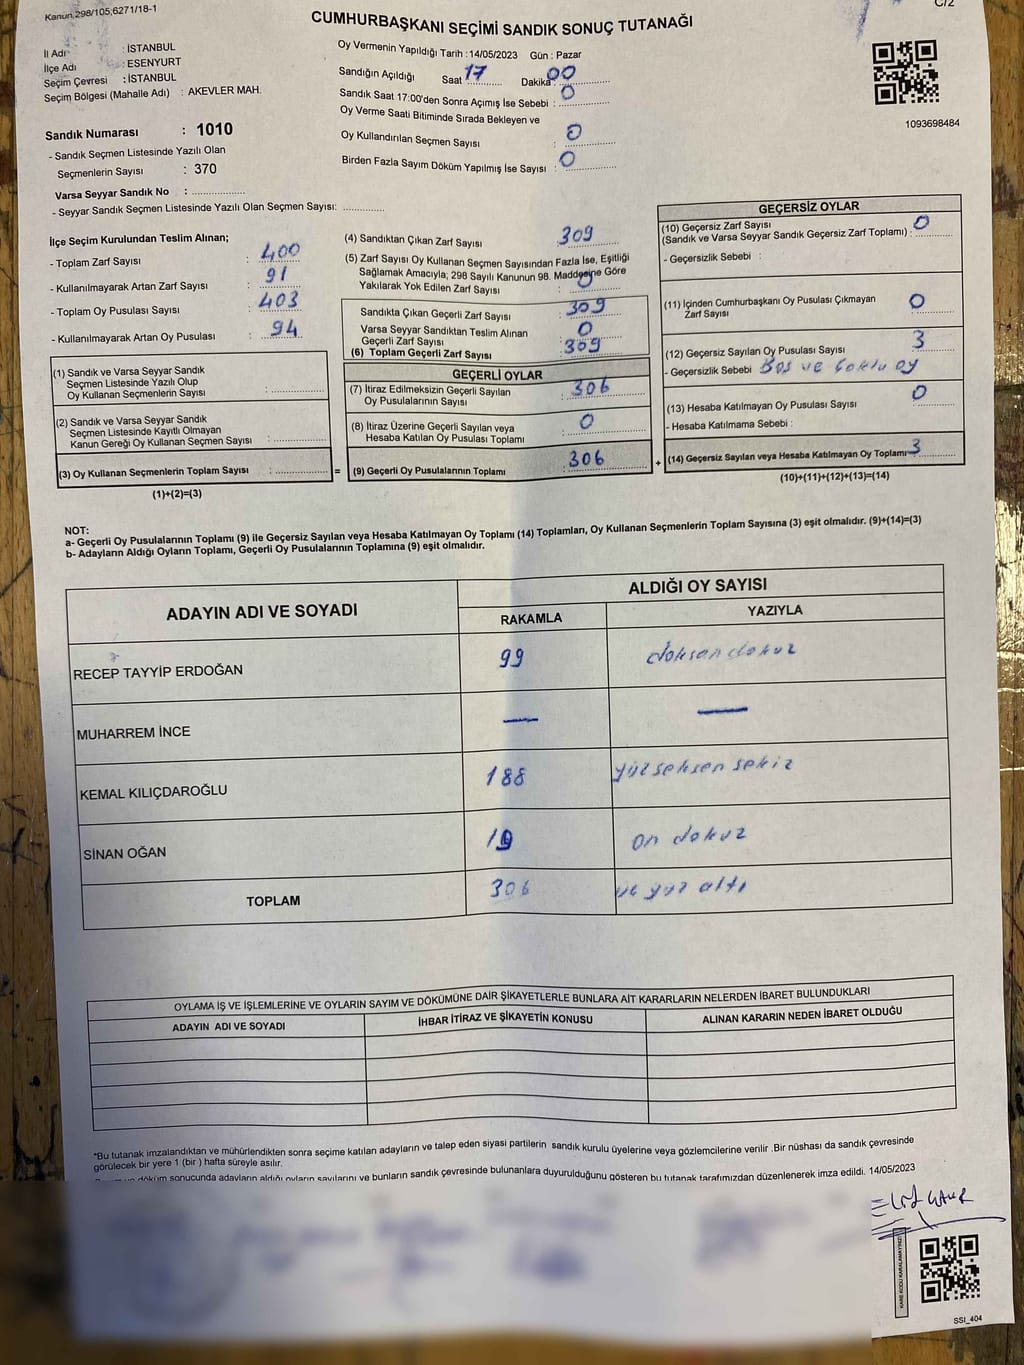 Kanun,298/105,6271/18-1
C/2
CUMHURBAŞKANI SEÇİMİ SANDIK SONUÇ TUTANAĞI
İl Adı : İSTANBUL
İlçe Adı : ESENYURT
Seçim Çevresi : İSTANBUL
Seçim Bölgesi (Mahalle Adı) : AKEVLER MAH.
Sandık Numarası : 1010
- Sandık Seçmen Listesinde Yazılı Olan
Seçmenlerin Sayısı : 370
Varsa Seyyar Sandık No :
- Seyyar Sandık Seçmen Listesinde Yazılı Olan Seçmen Sayısı:
Oy Vermenin Yapıldığı Tarih :14/05/2023 Gün : Pazar
Sandığın Açıldığı Saat 17 Dakika 00
Sandık Saat 17:00'den Sonra Açımış İse Sebebi : 0
Oy Verme Saati Bitiminde Sırada Bekleyen ve
Oy Kullandırılan Seçmen Sayısı : 0
Birden Fazla Sayım Döküm Yapılmış İse Sayısı : 0
1093698484
İlçe Seçim Kurulundan Teslim Alınan;
- Toplam Zarf Sayısı : 400
- Kullanılmayarak Artan Zarf Sayısı : 91
- Toplam Oy Pusulası Sayısı : 403
- Kullanılmayarak Artan Oy Pusulası : 94
(1) Sandık ve Varsa Seyyar Sandık
Seçmen Listesinde Yazılı Olup
Oy Kullanan Seçmenlerin Sayısı :
(2) Sandık ve Varsa Seyyar Sandık
Seçmen Listesinde Kayıtlı Olmayan
Kanun Gereği Oy Kullanan Seçmen Sayısı :
(3) Oy Kullanan Seçmenlerin Toplam Sayısı :
(1)+(2)=(3)
=
(4) Sandıktan Çıkan Zarf Sayısı : 309
(5) Zarf Sayısı Oy Kullanan Seçmen Sayısından Fazla İse, Eşitliği
Sağlamak Amacıyla; 298 Sayılı Kanunun 98. Maddesine Göre
Yakılarak Yok Edilen Zarf Sayısı : 0
Sandıkta Çıkan Geçerli Zarf Sayısı : 309
Varsa Seyyar Sandıktan Teslim Alınan
Geçerli Zarf Sayısı : 0
(6) Toplam Geçerli Zarf Sayısı : 309
GEÇERLİ OYLAR
(7) İtiraz Edilmeksizin Geçerli Sayılan
Oy Pusulalarının Sayısı : 306
(8) İtiraz Üzerine Geçerli Sayılan veya
Hesaba Katılan Oy Pusulası Toplamı : 0
(9) Geçerli Oy Pusulalarının Toplamı : 306
+
GEÇERSİZ OYLAR
(10) Geçersiz Zarf Sayısı
(Sandık ve Varsa Seyyar Sandık Geçersiz Zarf Toplamı) : 0
- Geçersizlik Sebebi :
(11) İçinden Cumhurbaşkanı Oy Pusulası Çıkmayan
Zarf Sayısı : 0
(12) Geçersiz Sayılan Oy Pusulası Sayısı : 3
- Geçersizlik Sebebi Boş ve Çoklu oy
(13) Hesaba Katılmayan Oy Pusulası Sayısı : 0
- Hesaba Katılmama Sebebi :
(14) Geçersiz Sayılan veya Hesaba Katılmayan Oy Toplamı 3
(10)+(11)+(12)+(13)=(14)
NOT:
a- Geçerli Oy Pusulalarının Toplamı (9) ile Geçersiz Sayılan veya Hesaba Katılmayan Oy Toplamı (14) Toplamları, Oy Kullanan Seçmenlerin Toplam Sayısına (3) eşit olmalıdır. (9)+(14)=(3)
b- Adayların Aldığı Oyların Toplamı, Geçerli Oy Pusulalarının Toplamına (9) eşit olmalıdır.
ADAYIN ADI VE SOYADI
ALDIĞI OY SAYISI
RAKAMLA YAZIYLA
RECEP TAYYİP ERDOĞAN 99 doksan dokuz
MUHARREM İNCE — —
KEMAL KILIÇDAROĞLU 188 yüz seksen sekiz
SİNAN OĞAN 19 on dokuz
TOPLAM 306 üç yüz altı
OYLAMA İŞ VE İŞLEMLERİNE VE OYLARIN SAYIM VE DÖKÜMÜNE DAİR ŞİKAYETLERLE BUNLARA AİT KARARLARIN NELERDEN İBARET BULUNDUKLARI
ADAYIN ADI VE SOYADI İHBAR İTİRAZ VE ŞİKAYETİN KONUSU ALINAN KARARIN NEDEN İBARET OLDUĞU
*Bu tutanak imzalandıktan ve mühürlendikten sonra seçime katılan adayların ve talep eden siyasi partilerin sandık kurulu üyelerine veya gözlemcilerine verilir .Bir nüshası da sandık çevresinde
görülecek bir yere 1 (bir ) hafta süreyle asılır.
döküm sonucunda adayların aldığı oyların sayılarını ve bunların sandık çevresinde bulunanlara duyurulduğunu gösteren bu tutanak tarafımızdan düzenlenerek imza edildi. 14/05/2023
KARE KODU KARALAMAYINIZ
SSI_404